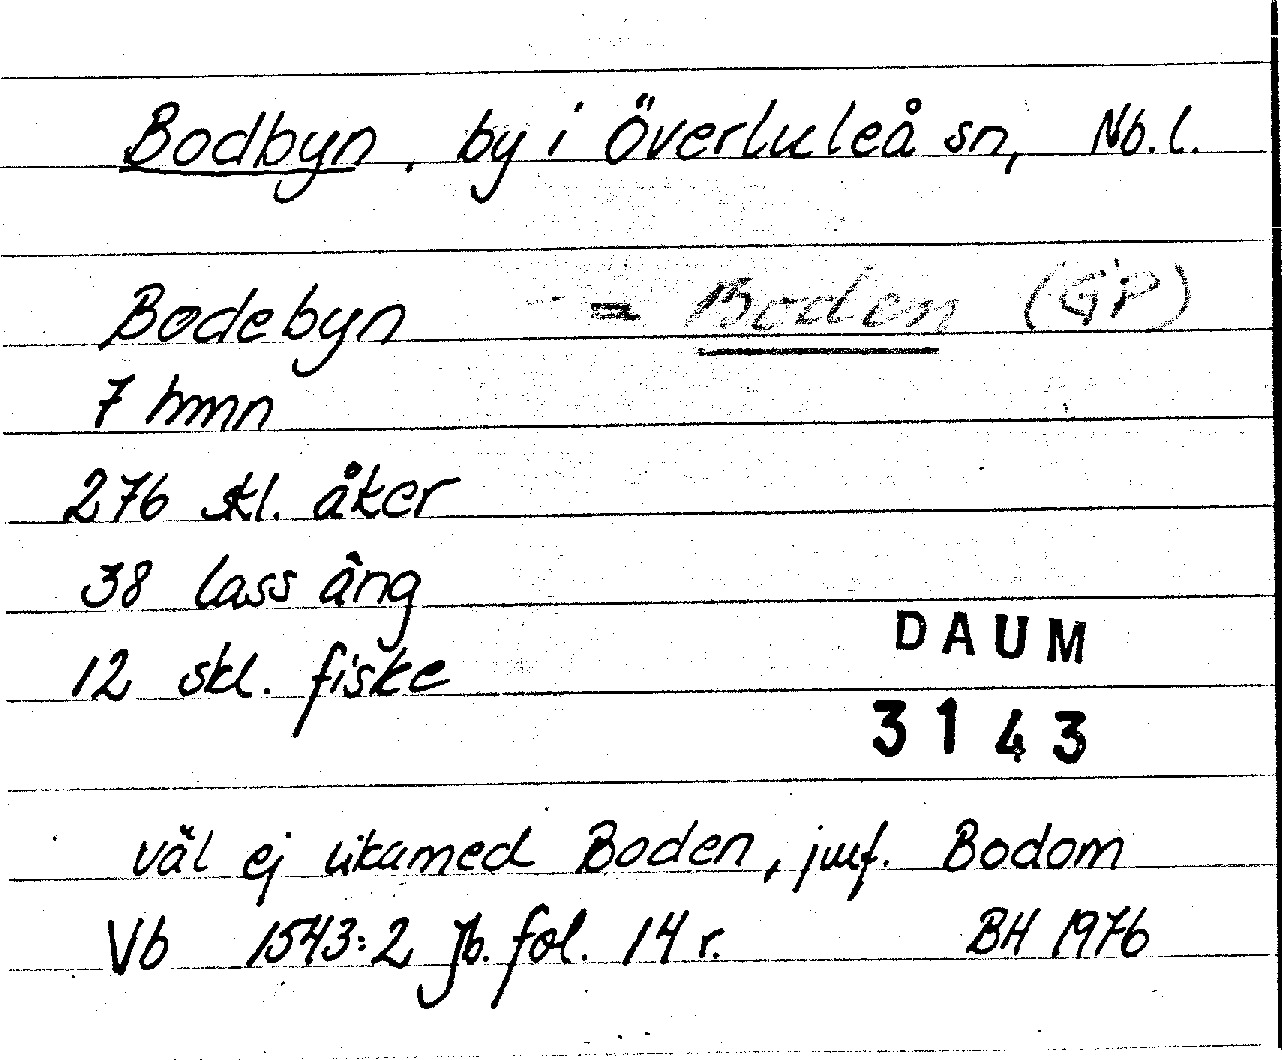 Bodbyn, by i Överluleå sn, Nb.l.
Bodebyn = Boden (GP)
7 hmn
276 skl. åker
38 lass äng
12 skl. fiske
DAUM
3143
väl ej likamed Boden, jmf. Bodom
Vb 1543:2 Jb. fol. 14 r. BH 1976